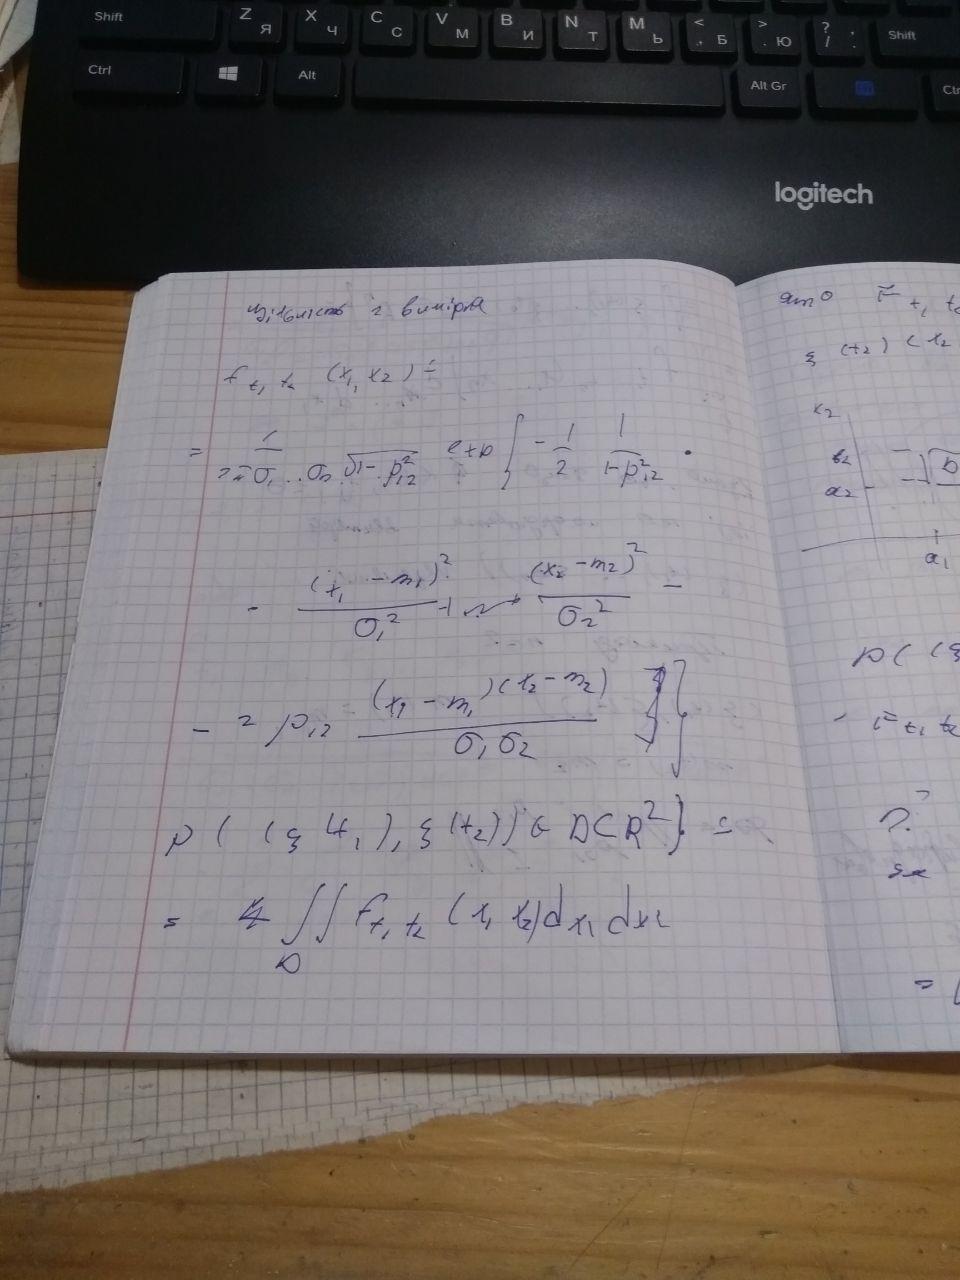 Shift Z Я X Ч C С V М B И N Т M Ь < , Б > . Ю ? / . , Shift
Ctrl Alt Alt Gr Ctr
logitech
Щільність 2 вимірна
f t₁ t₂ (x₁, x₂) =
= 1 / 2π σ₁ .. σ₂ √1 - ρ²₁₂ exp { - 1/2 1 / 1-ρ²₁₂ ·
· (x₁ - m₁)² / σ₁² + (x₂ - m₂)² / σ₂² -
- 2 ρ₁,₂ (x₁ - m₁)(x₂ - m₂) / σ₁ σ₂ }
P ( (ξ (t₁), ξ (t₂)) ∈ D ⊂ R² } =
= ∬ D f t₁ t₂ (x₁ x₂) dx₁ dx₂
F t₁ t₂
ξ (t₂) (x₂
x₂
b₂
a₂
a₁
P( (ξ
F t₁ t₂
?
=